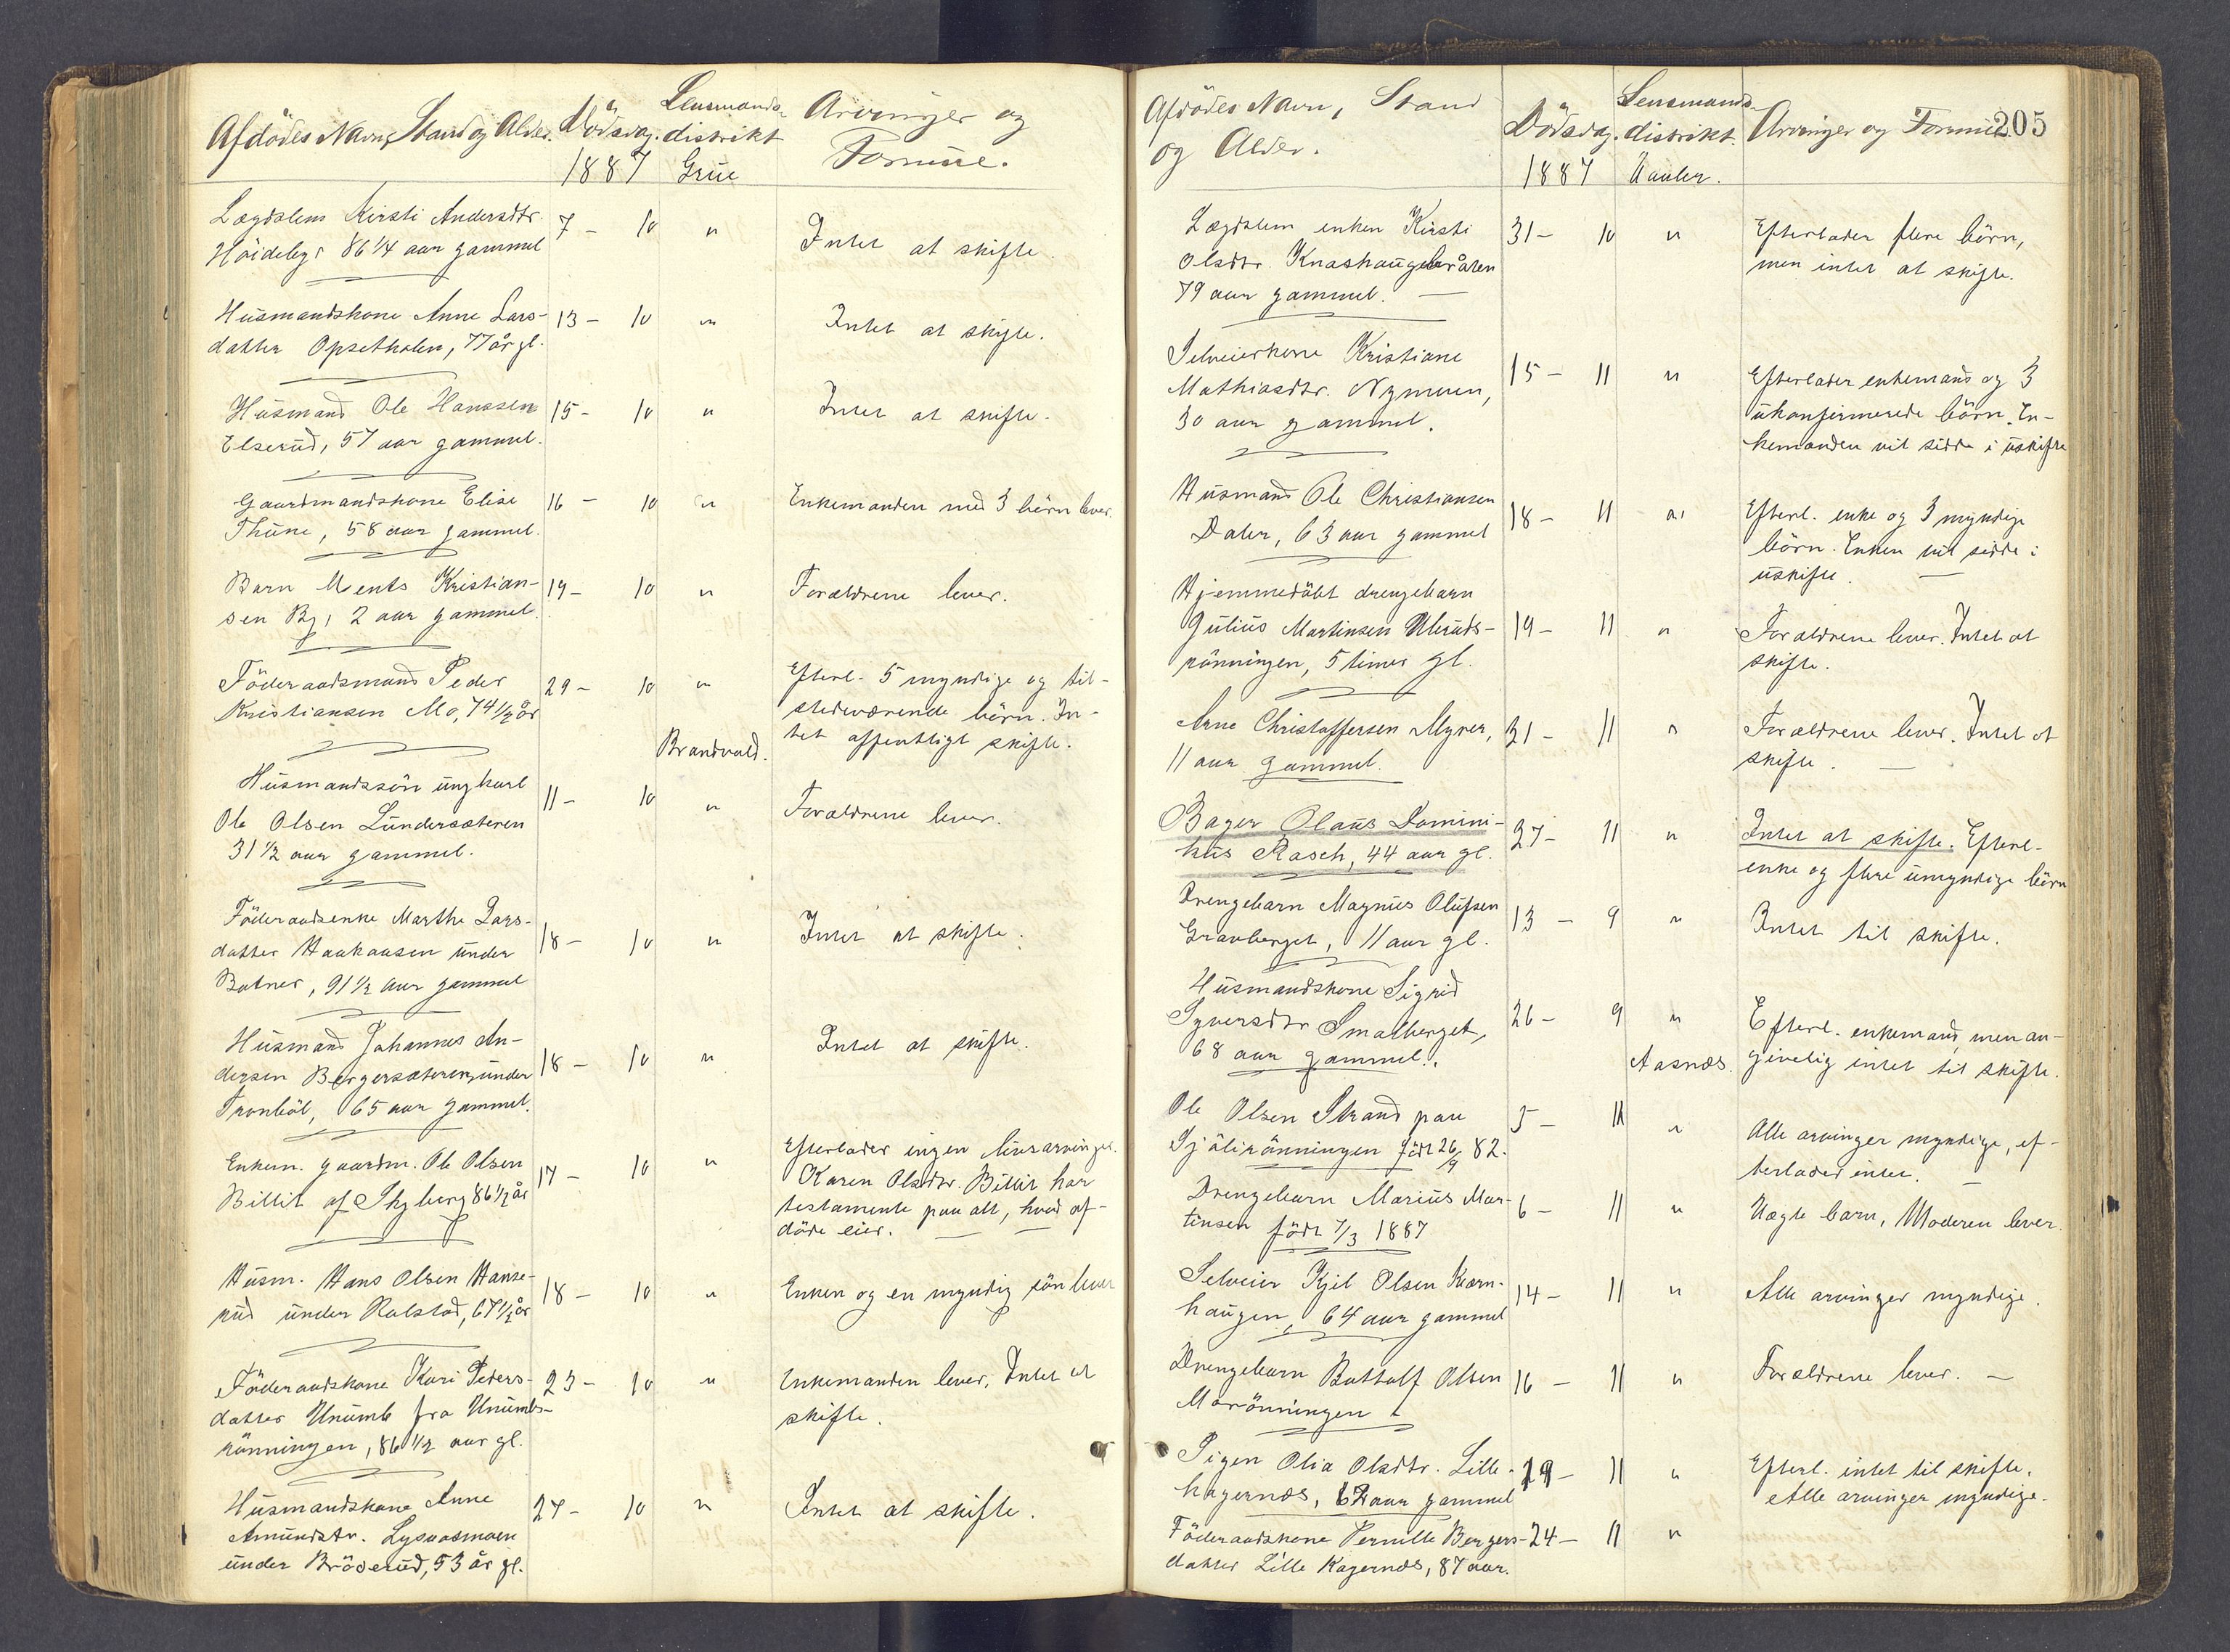 Afdödes Navn, Stand og Alder. Dödsdag. Lensmands-
distrikt
Arvinger og
Formue.
1887 Grue
Lægdslem Kirsti Andersdtr. 7 - 10 " Intet at skifte.
Höideby 86 1/4 aar gammel
Husmandskone Anne Lars- 13 - 10 " Intet at skifte.
datter Opsetholen, 77 år gl.
Husmand Ole Hanssen 15 - 10 " Intet at skifte.
Elserud, 57 aar gammel.
Gaardmandskone Elise 16 - 10 " Enkemanden med 3 börn lever.
Thune, 58 aar gammel.
Barn Ments Kristian- 19 - 10 " Forældrene lever.
sen By, 2 aar gammel.
Föderaadsmand Peder 29 - 10 " Efterl. 5 myndige og til-
Kristiansen Mo, 74 1/2 år stedeværende börn. In-
tet offentligt skifte.
Brandvold.
Husmandssön ungkarl 11 - 10 " Forældrene lever.
Ole Olsen Lundersæteren
31 1/2 aar gammel.
Föderaadsenke Marthe Lars- 18 - 10 " Intet at skifte.
datter Haukaasen under
Botner, 91 1/2 aar gammel
Husmand Johannes An- 18 - 10 " Intet at skifte.
dersen Bergersæteren under
Tronböl, 65 aar gammel.
Enkem. gaardm. Ole Olsen 17 - 10 " Efterlader ingen livsarvinger.
Billit af Skyberg 86 1/2 år Karen Olsdtr. Billit har
testamente paa alt, hvad af-
döde eier.
Husm. Hans Olsen Hanse- 18 - 10 " Enken og en myndig sön lever
rud under Rolstad, 67 1/2 år
Föderaadskone Kari Peders- 23 - 10 " Enkemanden lever. Intet at
datter Unumb fra Unumb- skifte.
rönningen, 86 1/2 aar gl.
Husmandskone Anne 27 - 10 " Intet at skifte.
Amundstr. Lysaasmoen
under Bröderud, 53 år gl.
Afdödes Navn, Stand
og Alder.
Dödsdag. Lensmands-
distrikt. Arvinger og Formue. 205
1887 Vaaler.
Lægdslem enken Kirsti 31 - 10 " Efterlader flere börn,
Olsdtr. Knashaugbråten men intet at skifte.
79 aar gammel.
Selveierkone Kristiane 15 - 11 " Efterlader enkemand og 3
Mathiasdtr. Nymoen, ukonfirmerede börn. En-
30 aar gammel. kemanden vil sidde i uskifte
Husmand Ole Christiansen 18 - 11 " Efterl. enke og 3 myndige
Daler, 63 aar gammel börn. Enken vil sidde i
uskifte.
Hjemmedöbt drengebarn
Julius Martinsen Ulruds- 19 - 11 " Forældrene lever. Intet at
rönningen, 5 timer gl. skifte.
Arne Christoffersen Myrer, 21 - 11 " Forældrene lever. Intet at
11 aar gammel. skifte.
Bager Olaus Domini- 27 - 11 " Intet at skifte. Efterl.
kus Rasch, 44 aar gl. enke og flere umyndige börn
Drengebarn Magnus Olufsen 13 - 9 " Intet til skifte.
Gravberget, 11 aar gl.
Husmandskone Sigrid
Syversdtr Smalberget, 26 - 9 " Efterl. enkemand, men an-
68 aar gammel. givelig intet til skifte.
Aasnæs.
Ole Olsen Strand paa 5 - 11 " Alle arvinger myndige, ef-
Sjölirönningen födt 26/9 82. terlader intet.
Drengebarn Marius Mar- 6 - 11 " Uægte barn, Moderen lever.
tinsen födt 7/3 1887
Selveier Kjel Olsen Kværn- 14 - 11 " Alle arvinger myndige.
haugen, 64 aar gammel
Drengebarn Bottolf Olsen 16 - 11 " Forældrene lever.
Morönningen
Pigen Olia Olsdtr. Lille- 19 - 11 " Efterl. intet til skifte.
kagernæs, 62 aar gammel Alle arvinger myndige.
Föderaadskone Pernille Bergers- 24 - 11 "
datter Lille Kagernæs, 87 aar.